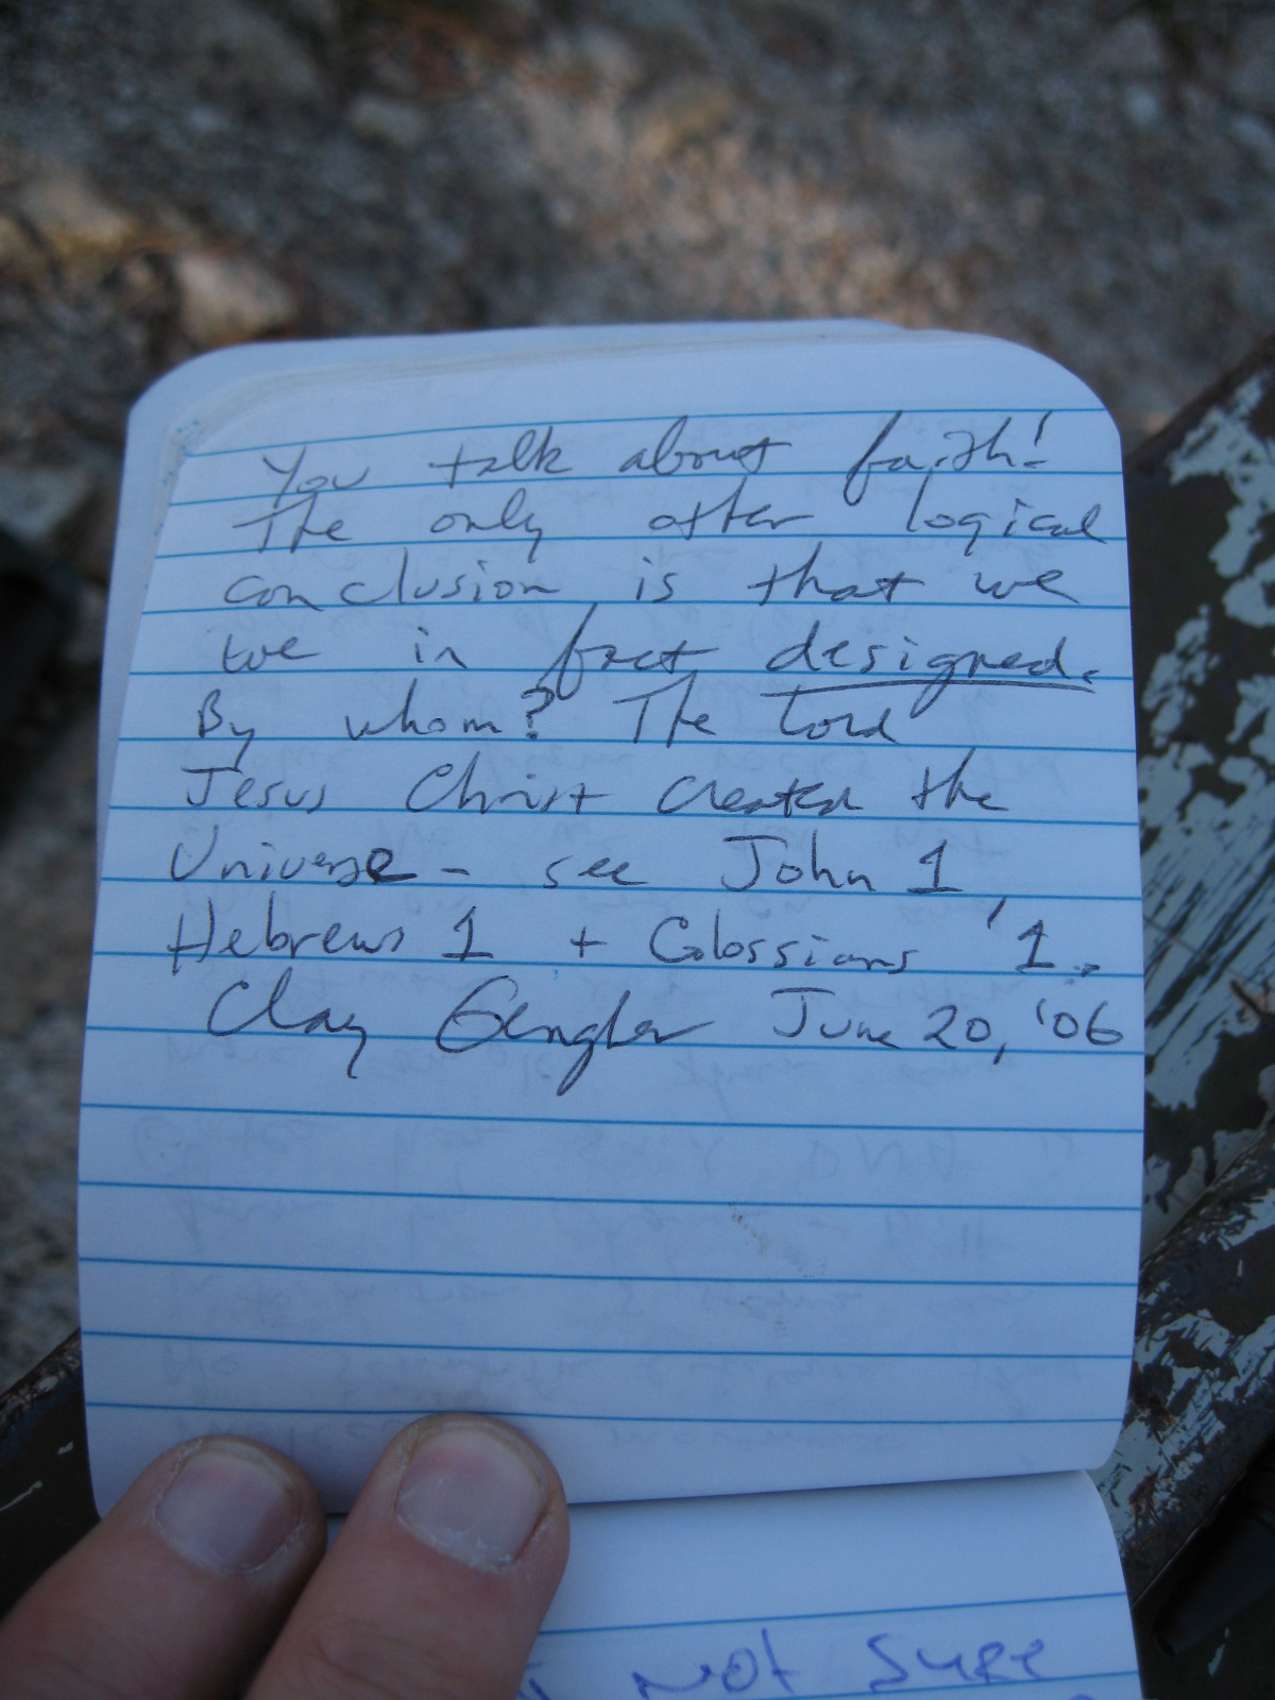 You talk about faith!
The only other logical
conclusion is that we
we in fact designed.
By whom? The Lord
Jesus Christ created the
Universe - see John 1,
Hebrews 1 + Colossians 1.
Clay Gengler June 20, '06
not sure